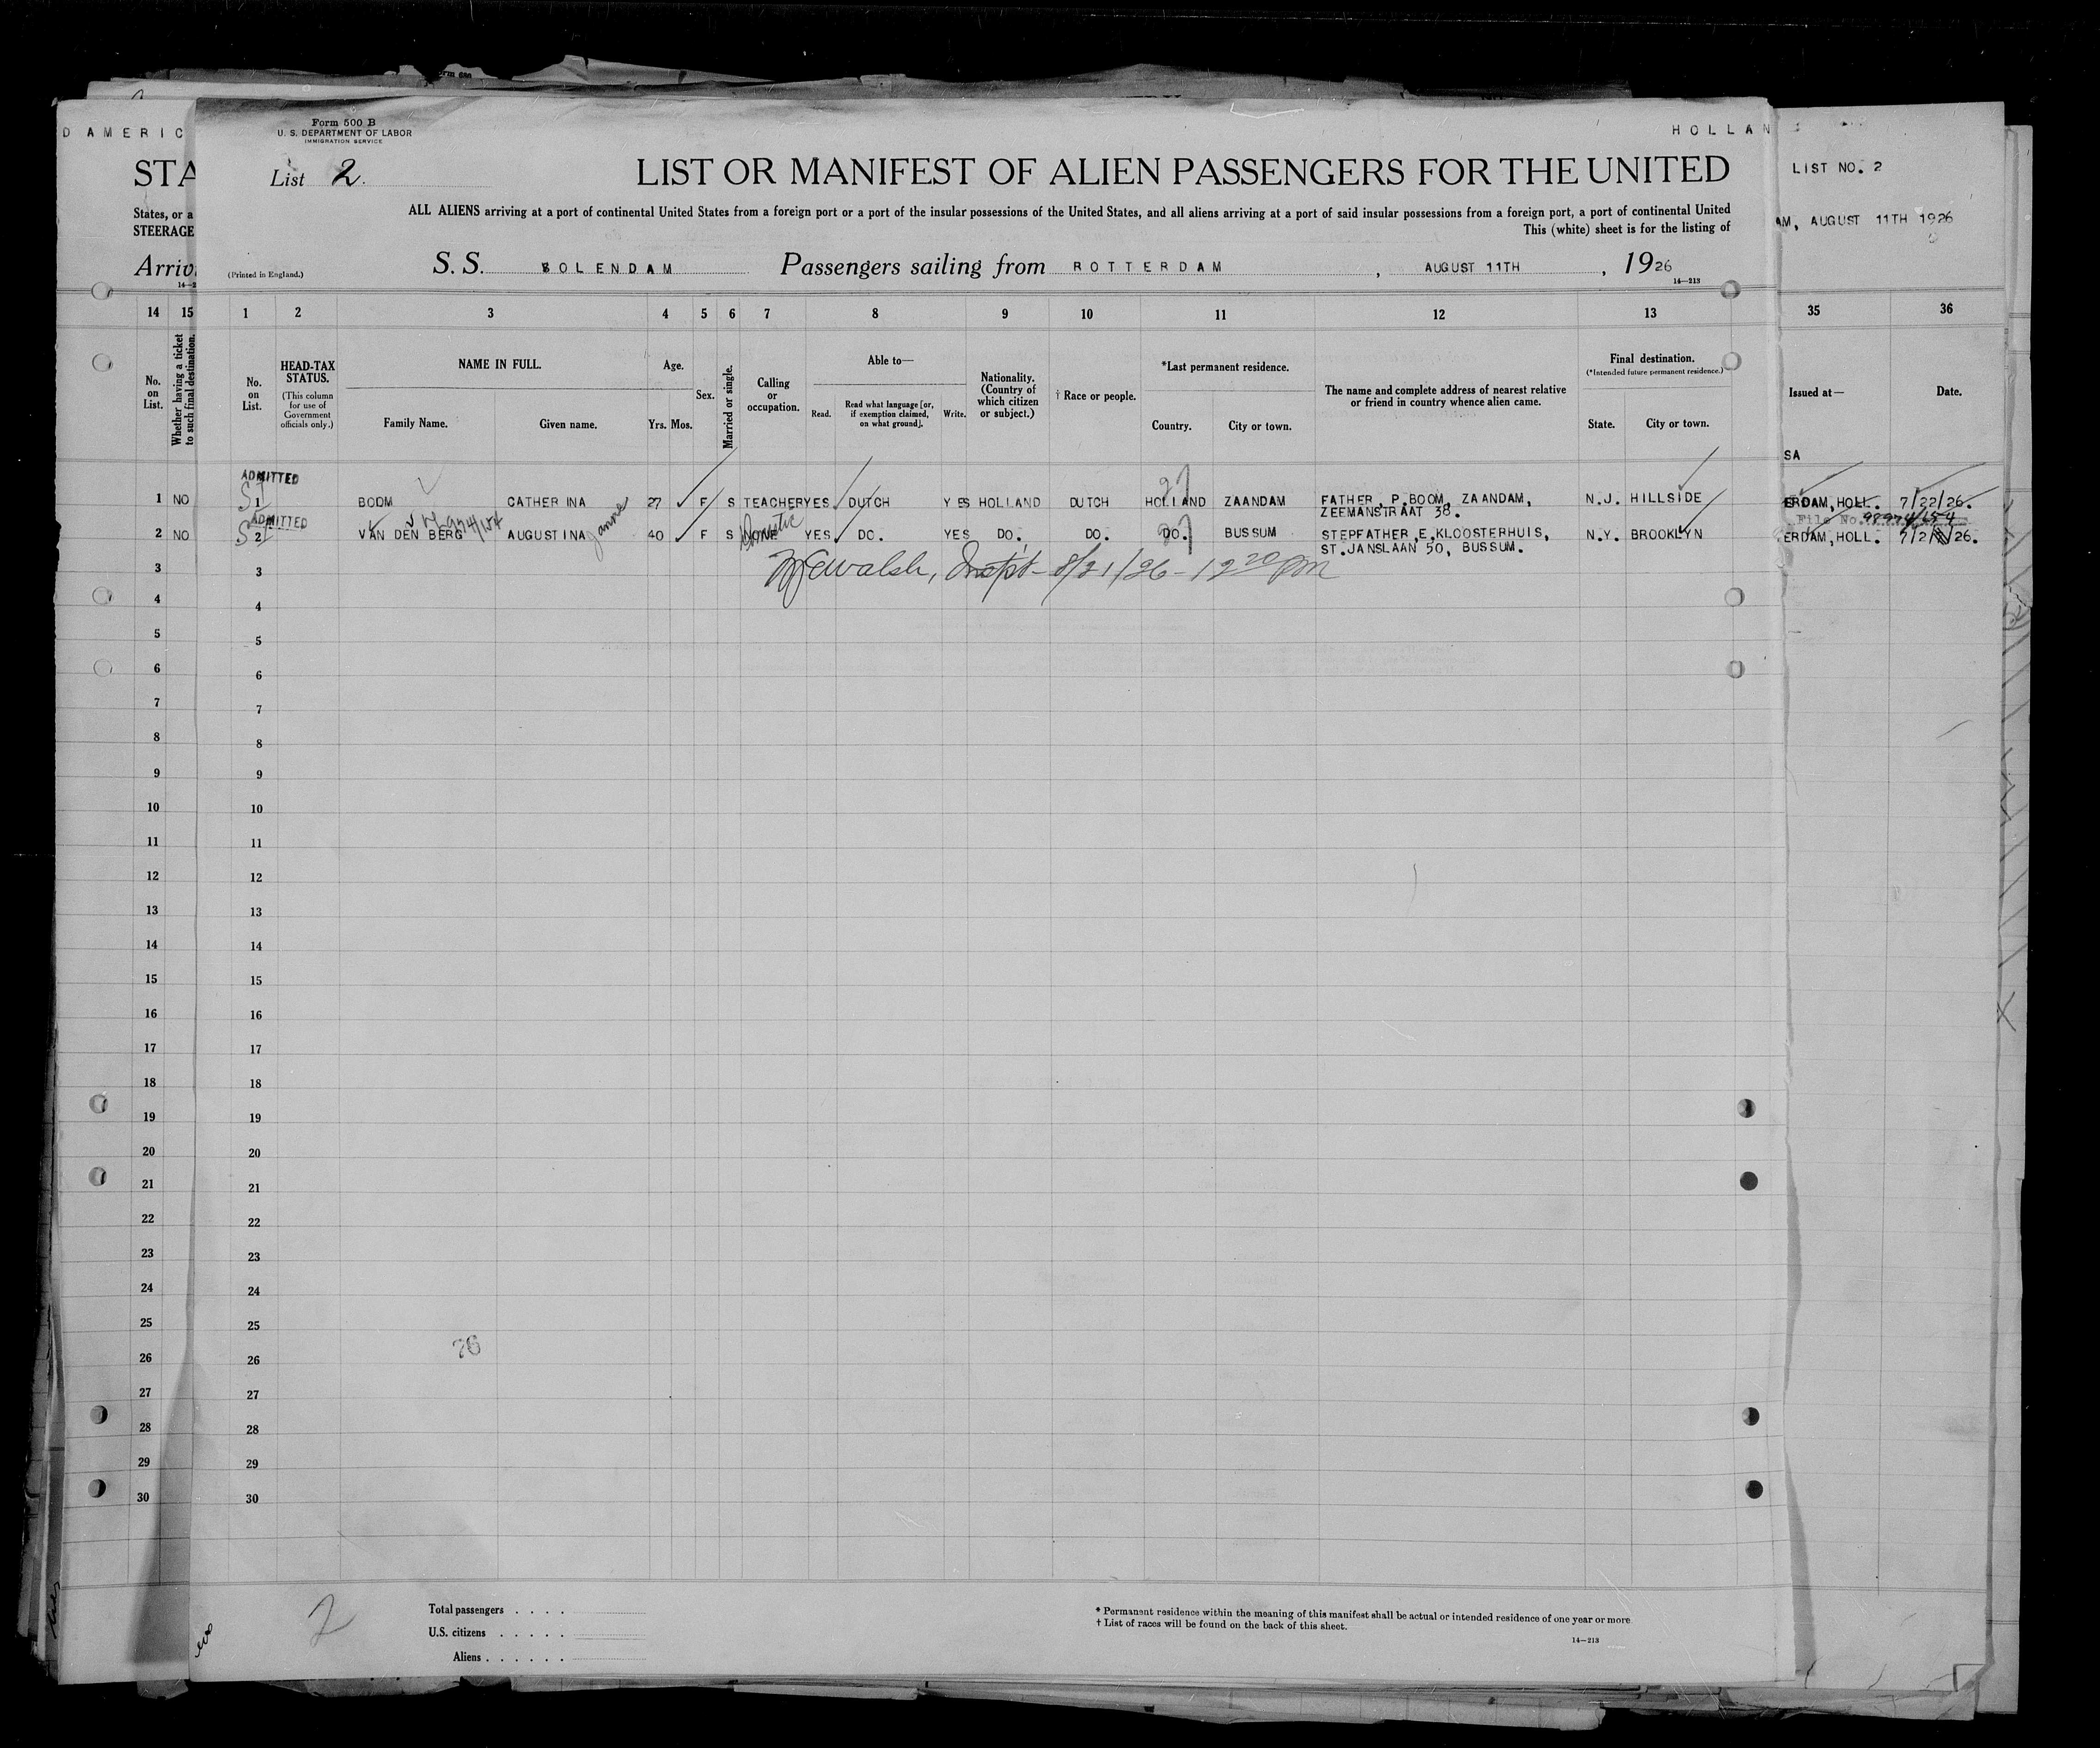 Form 500 B
U. S. DEPARTMENT OF LABOR
IMMIGRATION SERVICE
D AMERIC
HOLLAN
STA
List 2.
LIST OR MANIFEST OF ALIEN PASSENGERS FOR THE UNITED
LIST NO. 2
States, or a
ALL ALIENS arriving at a port of continental United States from a foreign port or a port of the insular possessions of the United States, and all aliens arriving at a port of said insular possessions from a foreign port, a port of continental United
STEERAGE
This (white) sheet is for the listing of
AM, AUGUST 11TH 1926
Arriv
(Printed in England.)
S. S. VOLENDAM Passengers sailing from ROTTERDAM, AUGUST 11TH, 1926
14—213
14 15 1 2 3 4 5 6 7 8 9 10 11 12 13 35 36
No. on List.
Whether having a ticket to such final destination.
No. on List.
HEAD-TAX STATUS.
(This column for use of Government officials only.)
NAME IN FULL.
Family Name. Given name.
Age.
Yrs. Mos.
Sex.
Married or single.
Calling or occupation.
Able to—
Read. Read what language [or, if exemption claimed, on what ground]. Write.
Nationality. (Country of which citizen or subject.)
† Race or people.
*Last permanent residence.
Country. City or town.
The name and complete address of nearest relative or friend in country whence alien came.
Final destination.
(*Intended future permanent residence.)
State. City or town.
Issued at—
Date.
SA
ADMITTED
1 NO SI 1 BOOM CATHERINA 27 F S TEACHER YES DUTCH YES HOLLAND DUTCH HOLLAND ZAANDAM FATHER, P.BOOM, ZAANDAM, N.J. HILLSIDE ERDAM, HOLL. 7/22/26.
ZEEMANSTRAAT 38.
ADMITTED
File No. 98974/154
2 NO SI 2 VAN DEN BERG AUGUSTINA Janna 40 F S NONE Domestic YES DO. YES DO. DO. DO. BUSSUM STEPFATHER, E.KLOOSTERHUIS, N.Y. BROOKLYN ERDAM, HOLL.
ST.JANSLAAN 50, BUSSUM.
Walsh, Inspt - 8/21/26 - 12 20 pm
3 3
4 4
5 5
6 6
7 7
8 8
9 9
10 10
11 11
12 12
13 13
14 14
15 15
16 16
17 17
18 18
19 19
20 20
21 21
22 22
23 23
24 24
25 25
76
26 26
27 27
28 28
29 29
30 30
2
Total passengers . . . .
U.S. citizens . . . . .
Aliens . . . . . .
* Permanent residence within the meaning of this manifest shall be actual or intended residence of one year or more.
† List of races will be found on the back of this sheet.
14—213